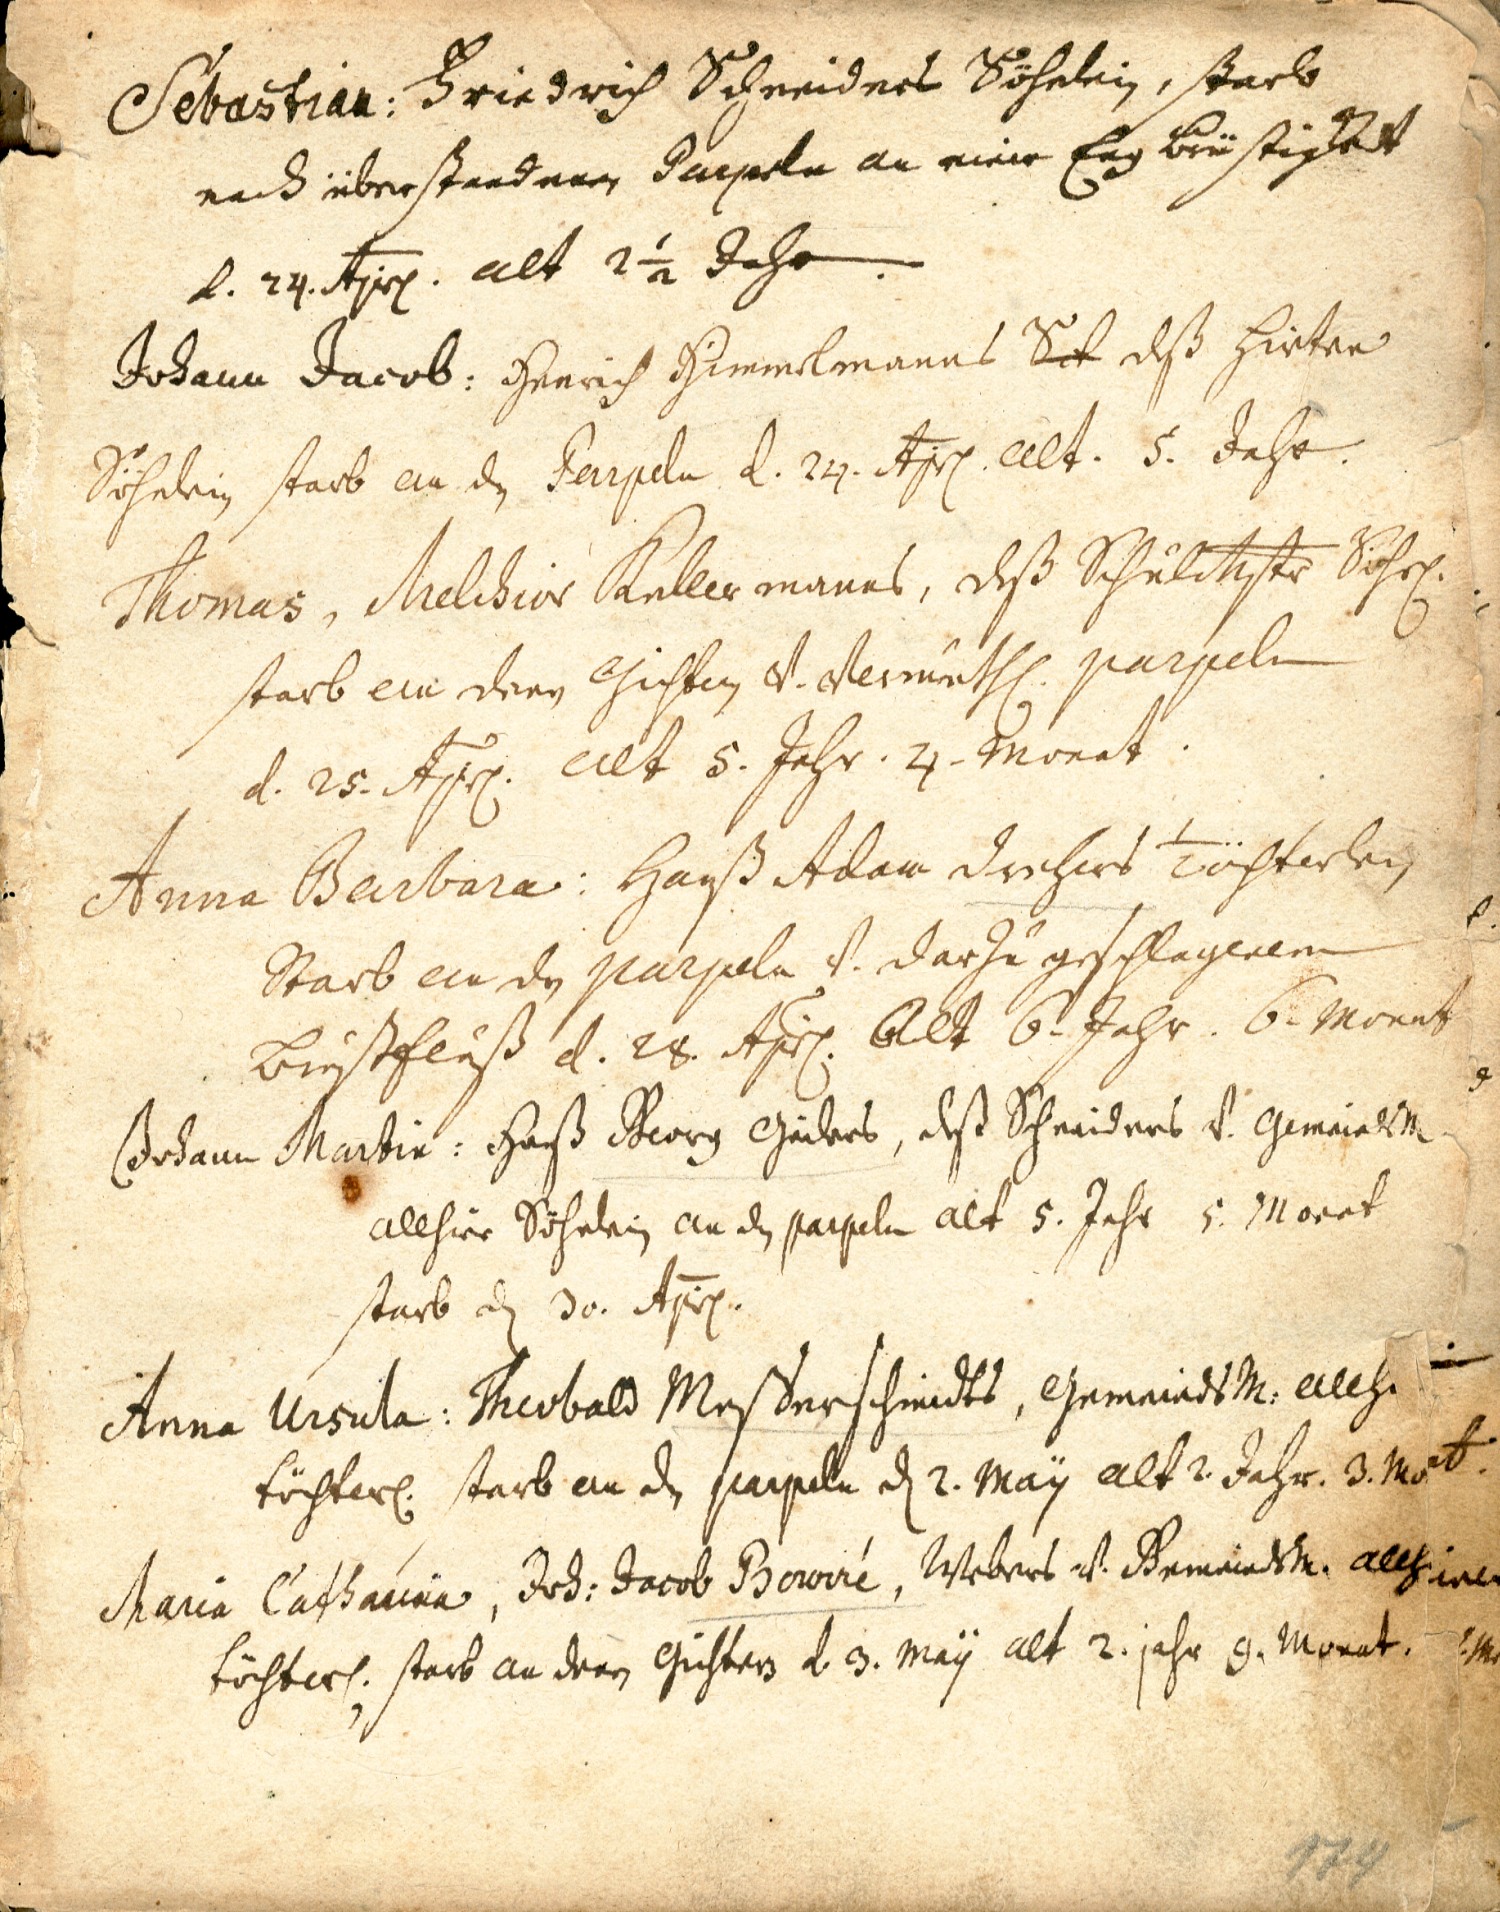 Sebastian: Friedrich Schneiders Söhnlein, starb
nach überstandenen Parpeln an einer Engbrüstigkeit
d. 24. Apr. alt 2 1/2 Jahr.
Johann Jacob: Henrich Himmelmanns deß Hirten
Söhnlein starb an dn Parpeln d. 24. Apr. alt. 5. Jahr.
Thomas, Melchior Kellermanns, deß Schuldhstr Söhnl.
starb an denen Gichtern v. vermuthl. parpeln
d. 25. Apr. alt 5. Jahr. 4. Monat.
Anna Barbara: Hanß Adam Drehers Töchterlein
Starb an dn parpeln v. darzu geschlagenem
Brustfluß d. 28. Apr. Alt 6. Jahr. 6. Monat
Johann Martin: Hanß Georg deß Schneiders v. GemeindsM.
allhier Söhnlein an dn parpeln alt 5. Jahr 5. Monat
starb dn 30. Apr.
Anna Ursula: Theobald Messerschmidts, GemeindsM: allh.
töchterl. starb an dn parpeln dn 2. Maÿ alt 2. Jahr. 3. Monat.
Maria Catharina, Joh: Jacob Boworé, Webers v. GemeindsM. allhier
töchterl. starb an denen Gichtern d. 3. Maÿ alt 2. jahr 9. Monat.
174